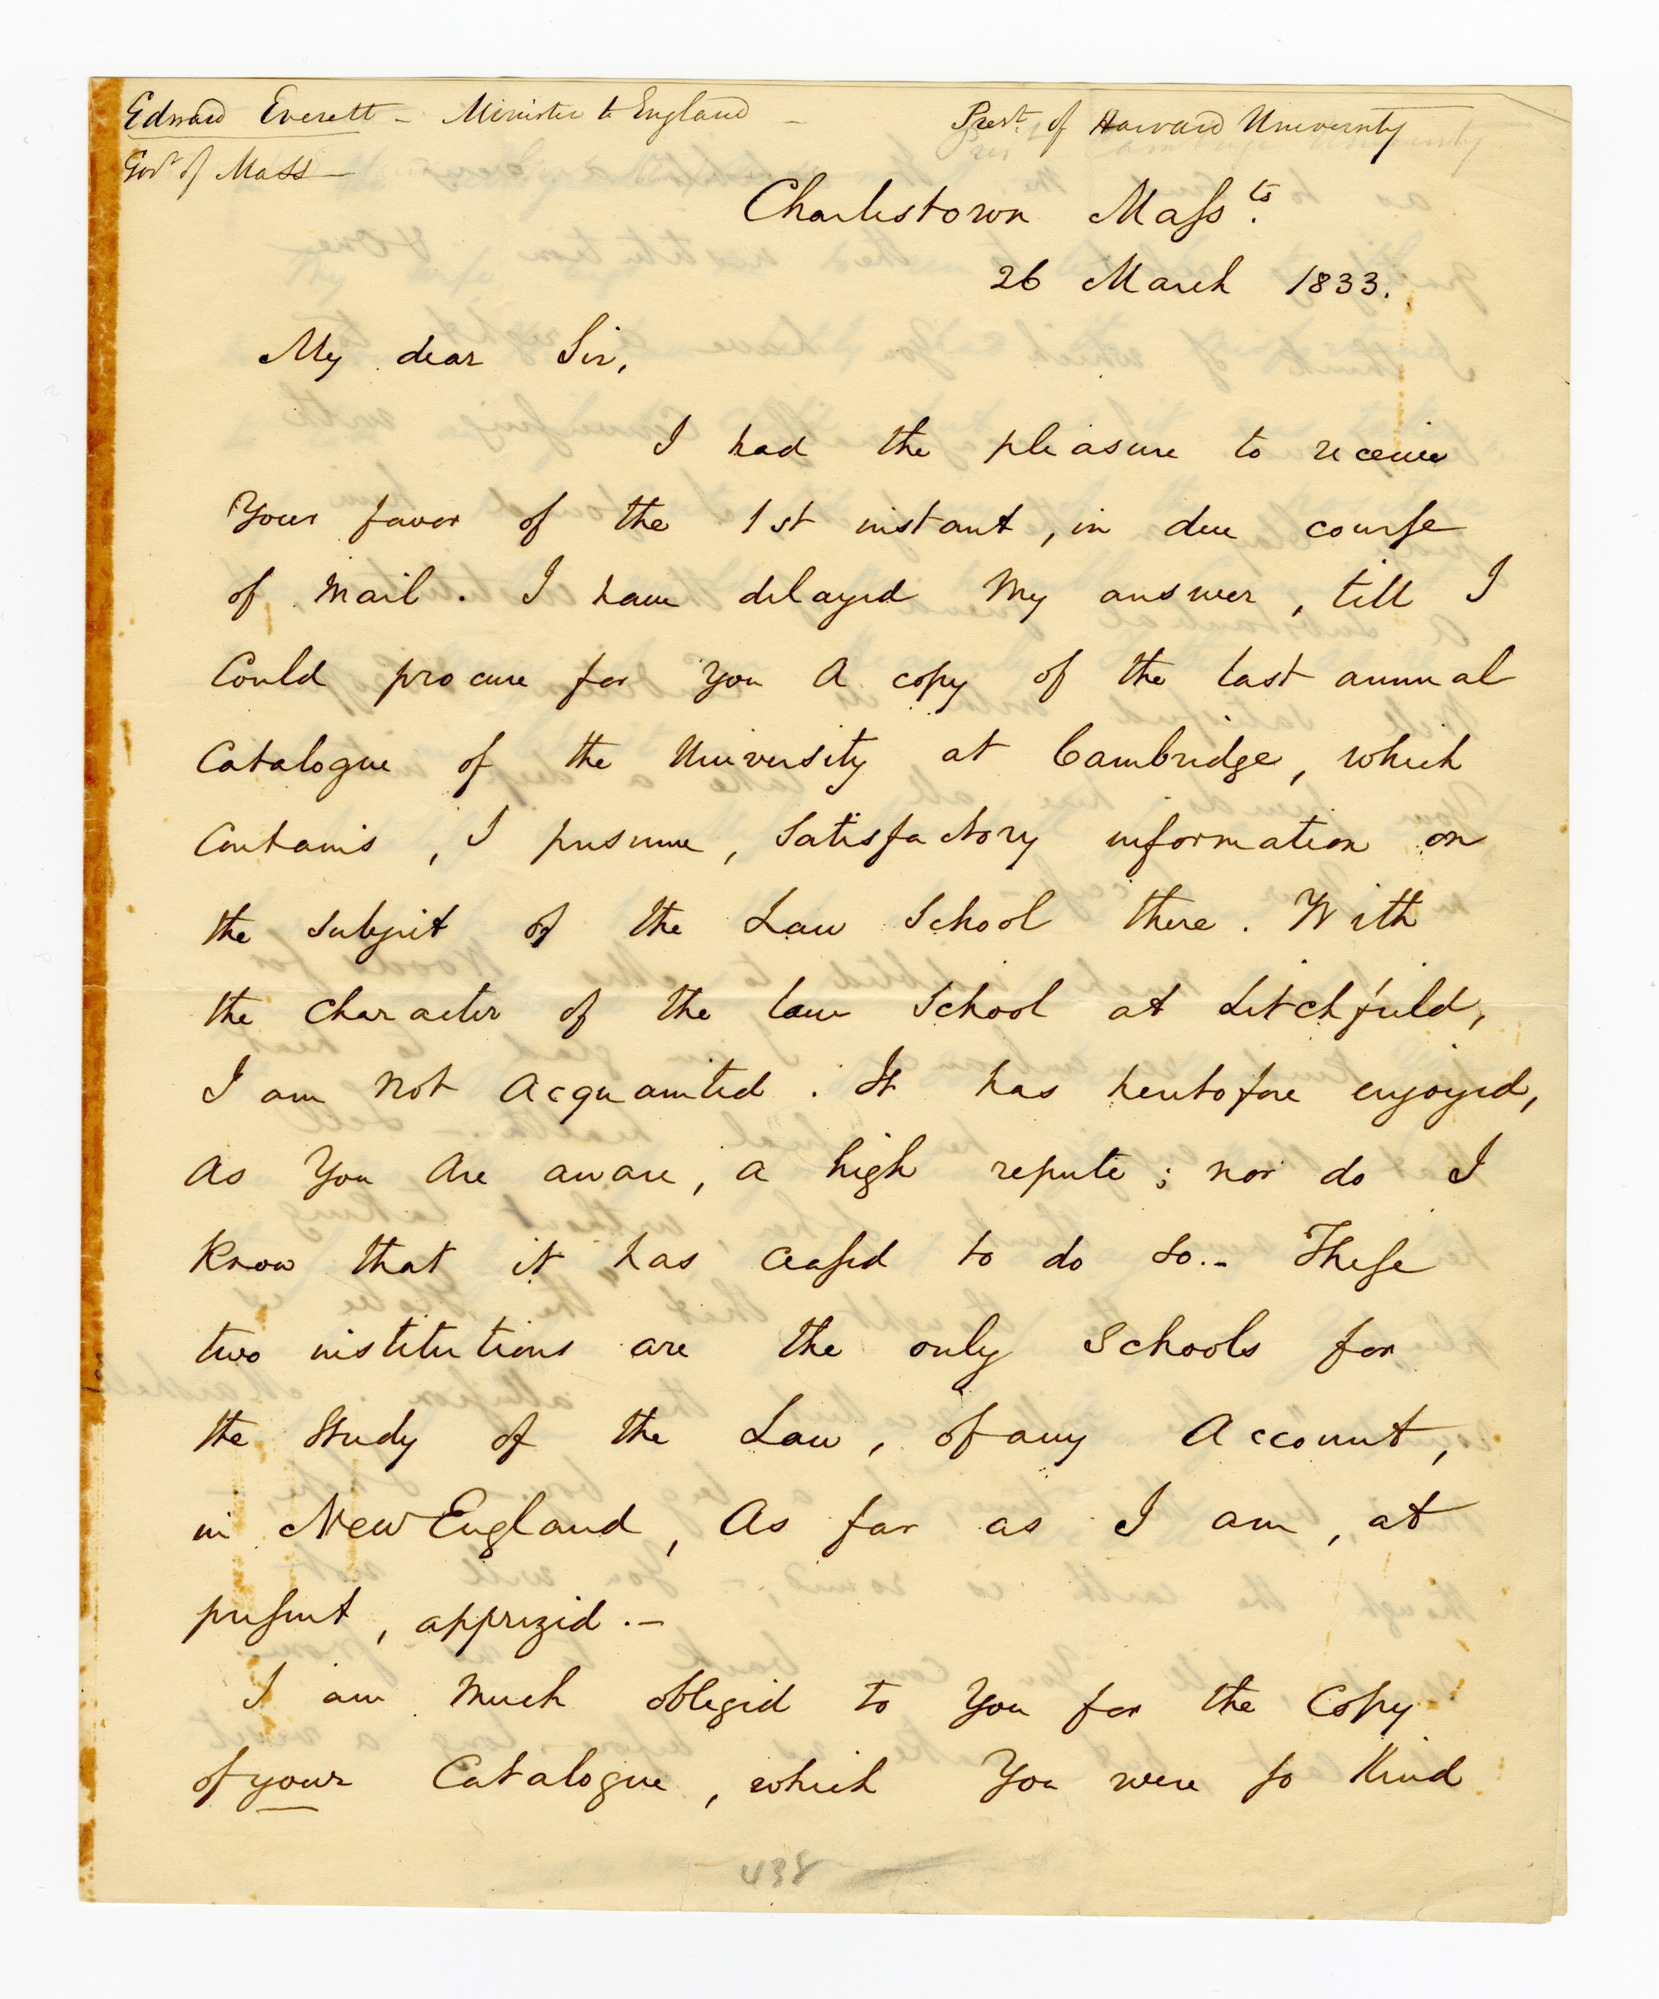 Edward Everett - Minister to England - Prest. of Harvard University
Govr. of Mass -
Charlestown Massts.
26 March 1833.
My dear Sir,
I had the pleasure to receive
Your favor of the 1st instant, in due course
of mail. I have delayed my answer, till I
Could procure for you a copy of the last annual
Catalogue of the University at Cambridge, which
Contains, I presume, satisfactory information on
the subject of the Law School there. With
the character of the law School at Litchfield,
I am not acquainted. It has heretofore enjoyed,
as you are aware, a high repute; nor do I
know that it has ceased to do so. - These
two institutions are the only Schools for
the study of the Law, of any account,
in New England, as far as I am, at
present, apprized. -
I am much obliged to you for the copy
of your Catalogue, which you were so kind
438